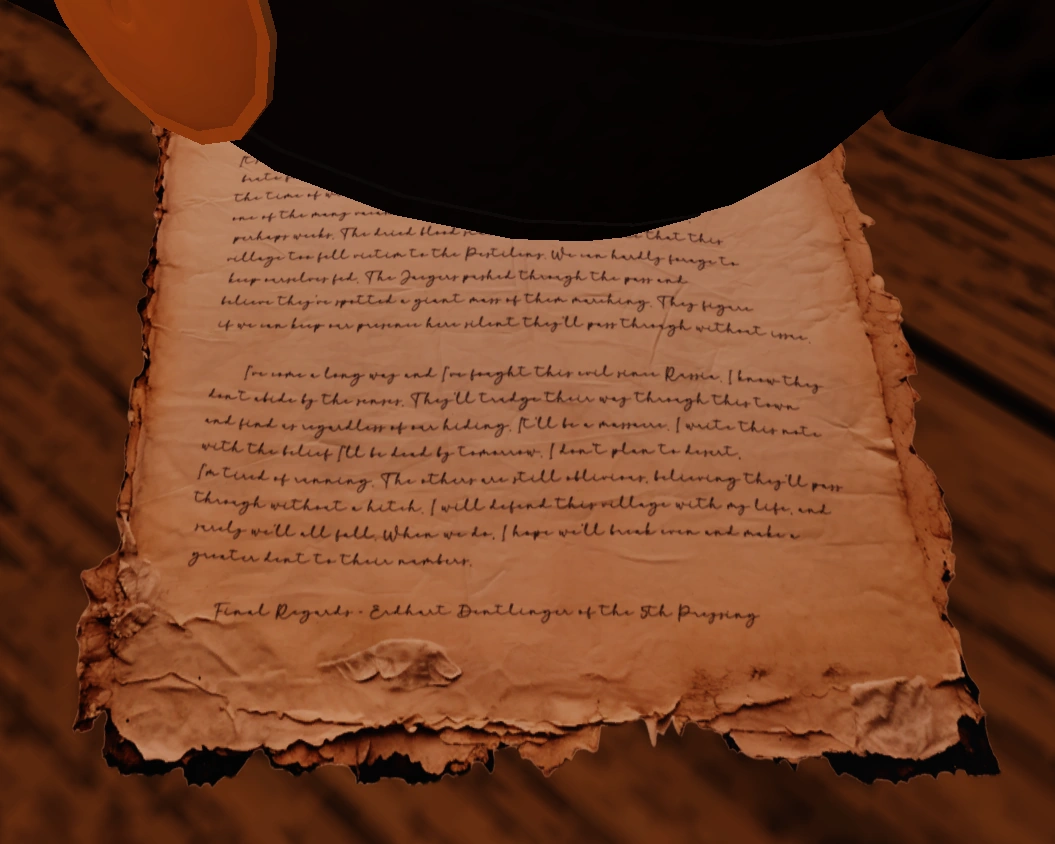 It's
hate f
the time of w
one of the many vacan
perhaps weeks. The dried blood s that this
village too fell victim to the Pestilens. We can hardly forage to
keep ourselves fed. The Jaegers pushed through the pass and
believe they're spotted a giant mass of them marching. They figure
if we can keep our presence here silent they'll pass through without issue.
I've come a long way and I've fought this evil since Russia. I know they
don't abide by the senses. They'll trudge their way through this town
and find us regardless of our hiding. It'll be a massacre. I write this note
with the belief I'll be dead by tomorrow. I don't plan to desert.
I'm tired of running. The others are still oblivious, believing they'll pass
through without a hitch. I will defend this village with my life, and
surely we'll all fall. When we do, I hope we'll break even and make a
greater dent to their numbers.
Final Regards - Erdhart Dentlinger of the 5th Preysing